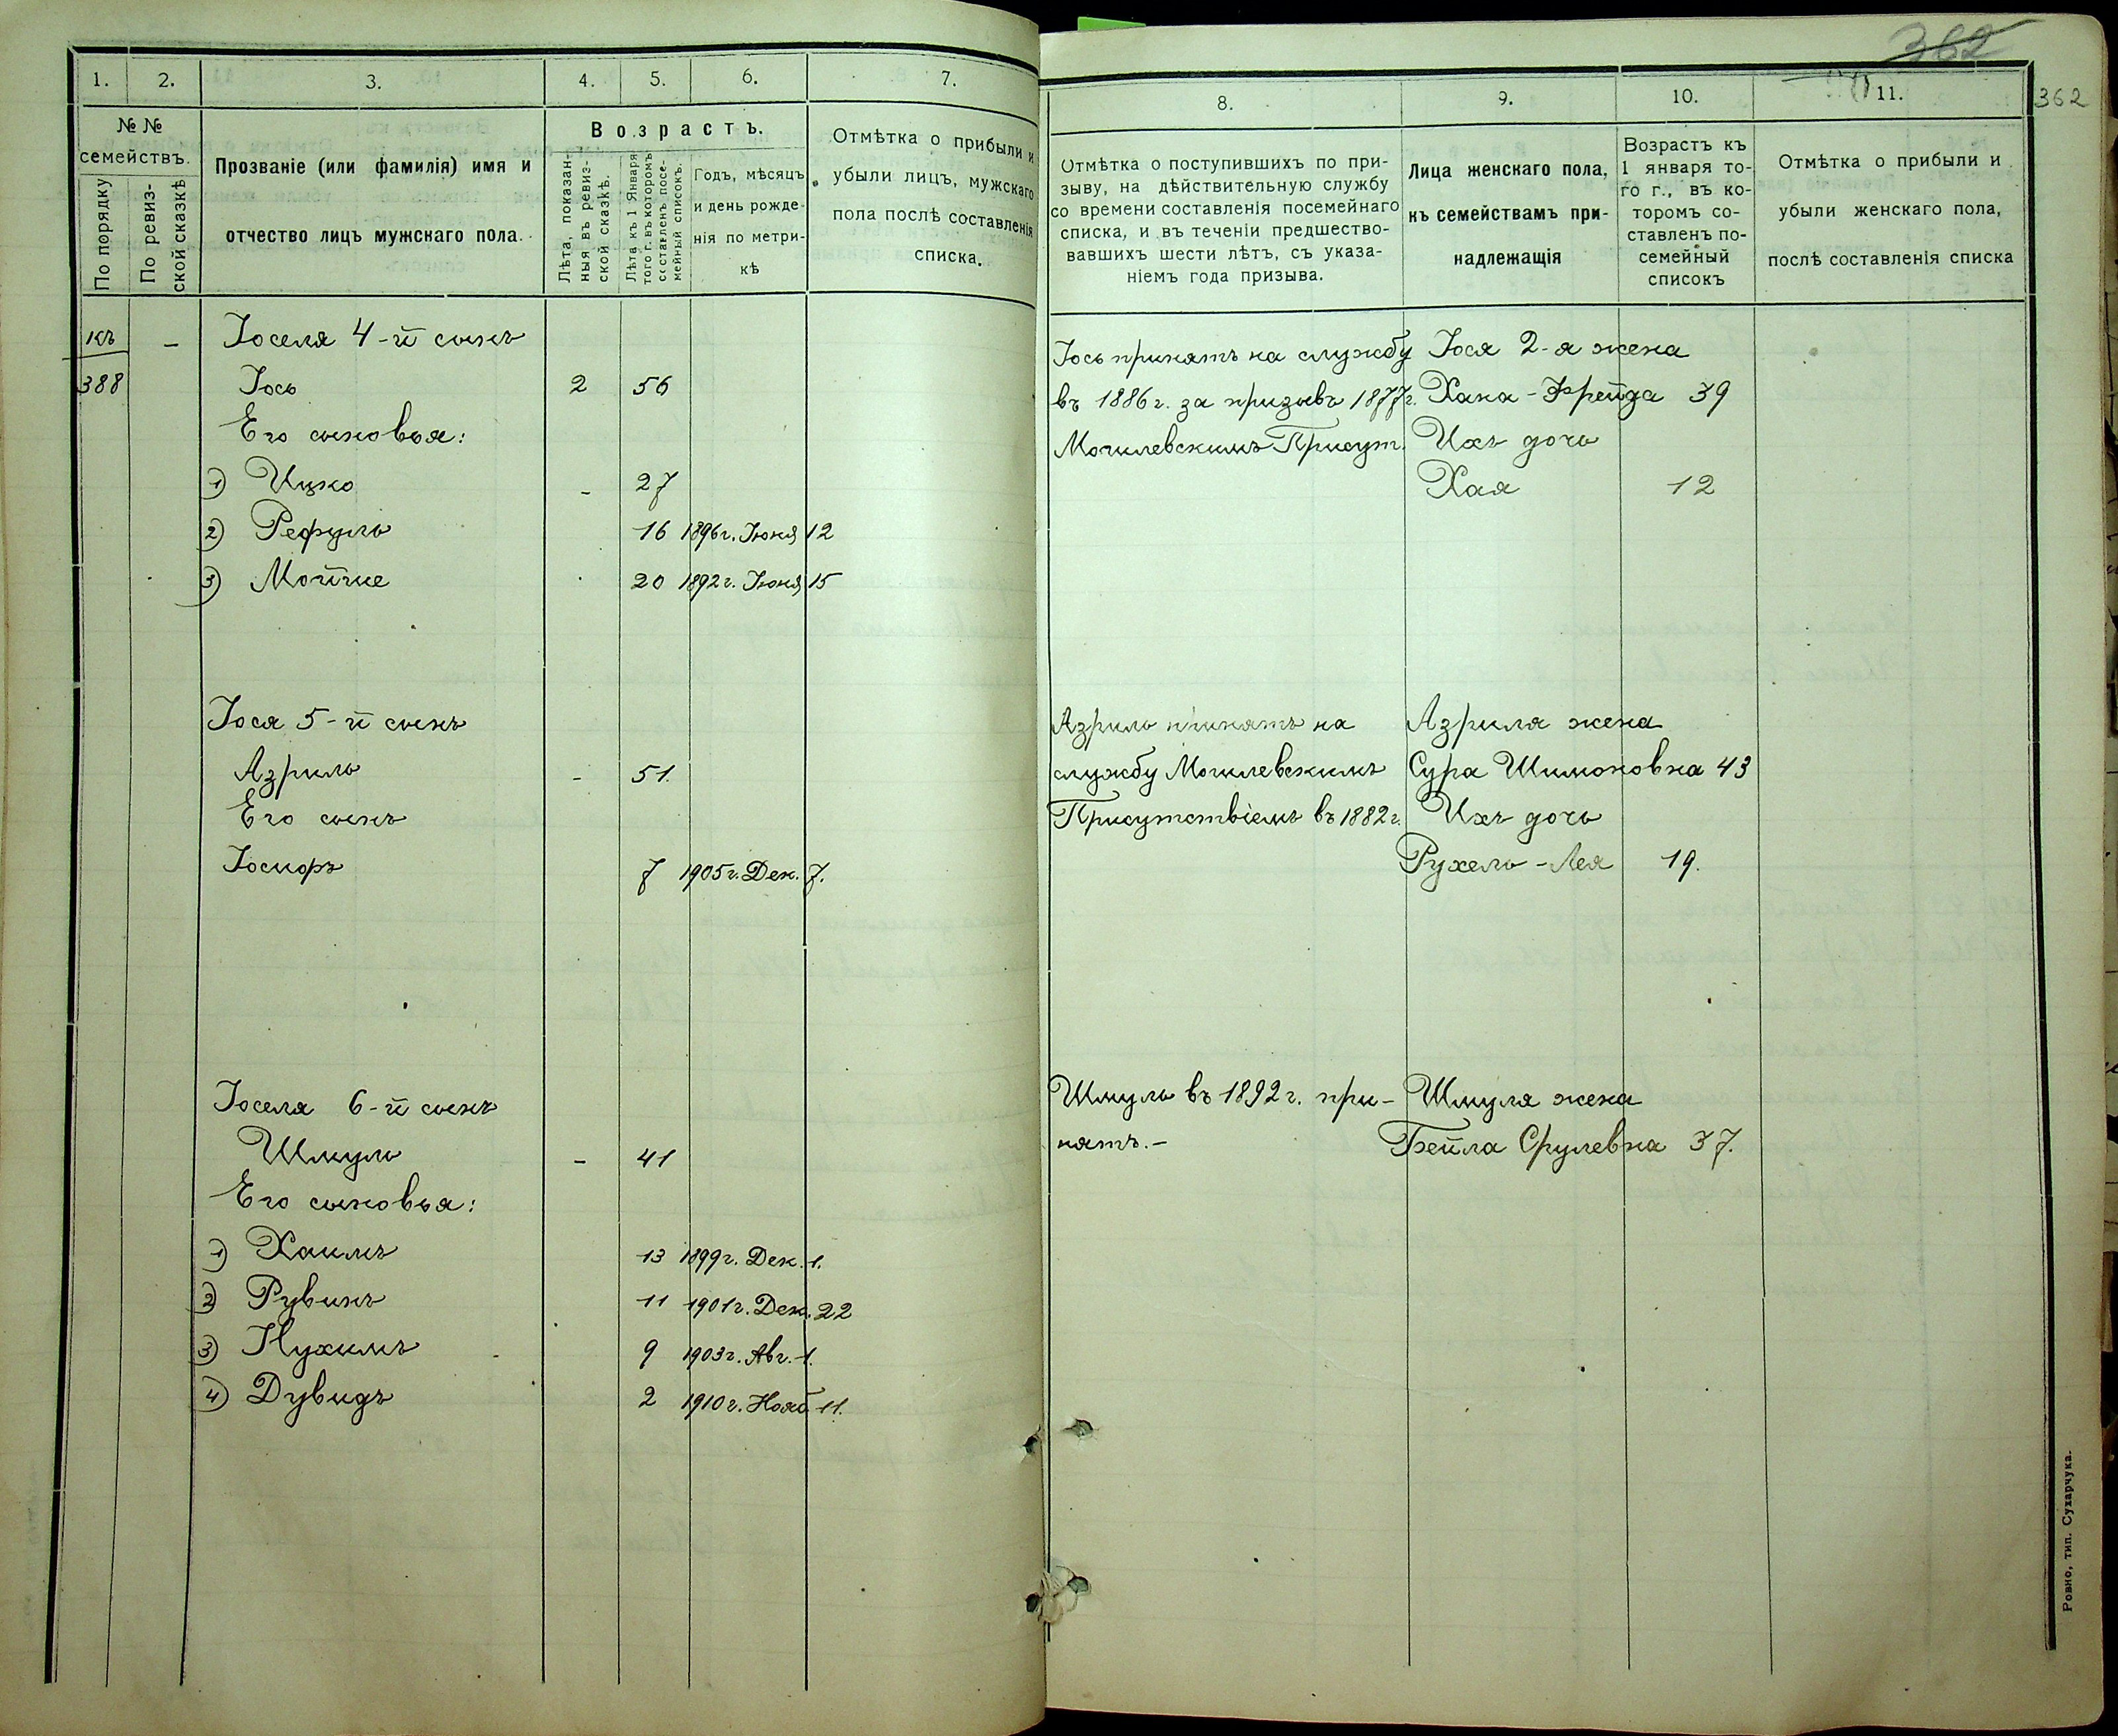 362
1. 2. 3. 4. 5. 6. 7.
№ №
семействъ.
По порядку
По ревиз-
ской сказкѣ
Прозваніе (или фамилія) имя и
отчество лицъ мужскаго пола.
Возрастъ.
Лѣта, показан-
ныя въ ревиз-
ской сказкѣ.
Лѣта къ 1 Января
того г. въ которомъ
составленъ посе-
мейный списокъ.
Годъ, мѣсяцъ
и день рожде-
нія по метри-
кѣ
Отмѣтка о прибыли и
убыли лицъ, мужскаго
пола послѣ составленія
списка.
къ – Іоселя 4-й сынъ
388 Іось 2 56
Его сыновья:
1) Ицко - 27
2) Рефуль 16 1896 г. Іюня 12
3) Мотпе 20 1892 г. Іюня 15
Іося 5-й сынъ
Азриль - 51.
Его сынъ
Іосифъ 7 1905 г. Дек. 7.
Іоселя 6-й сынъ
Шмуль - 41
Его сыновья:
1) Хаимъ 13 1899 г. Дек. 1.
2) Рувинъ 11 1901 г. Дек. 22
3) Нухимъ 9 1903 г. Авг. 1.
4) Дувидъ 2 1910 г. Нояб. 11.
8. 9. 10. 11. 362
Отмѣтка о поступившихъ по при-
зыву, на дѣйствительную службу
со времени составленія посемейнаго
списка, и въ теченіи предшество-
вавшихъ шести лѣтъ, съ указа-
ніемъ года призыва.
Лица женскаго пола,
къ семействамъ при-
надлежащія
Возрастъ къ
1 января то-
го г., въ ко-
торомъ со-
ставленъ по-
семейный
списокъ
Отмѣтка о прибыли и
убыли женскаго пола,
послѣ составленія списка
Іось принятъ на службу Іося 2-я жена
въ 1886 г. за призывъ 1877 г. Хана-Фрейда 39
Могилевскимъ Присут. Ихъ дочь
Хая 12
Азриль принятъ на Азриля жена
службу Могилевскимъ Сура Шимоновна 43
Присутствіемъ въ 1882 г. Ихъ дочь
Рухель-Лея 19.
Шмуль въ 1892 г. при- Шмуля жена
нятъ.- Бейла Срулевна 37.
Ровно, тип. Сухарчука.